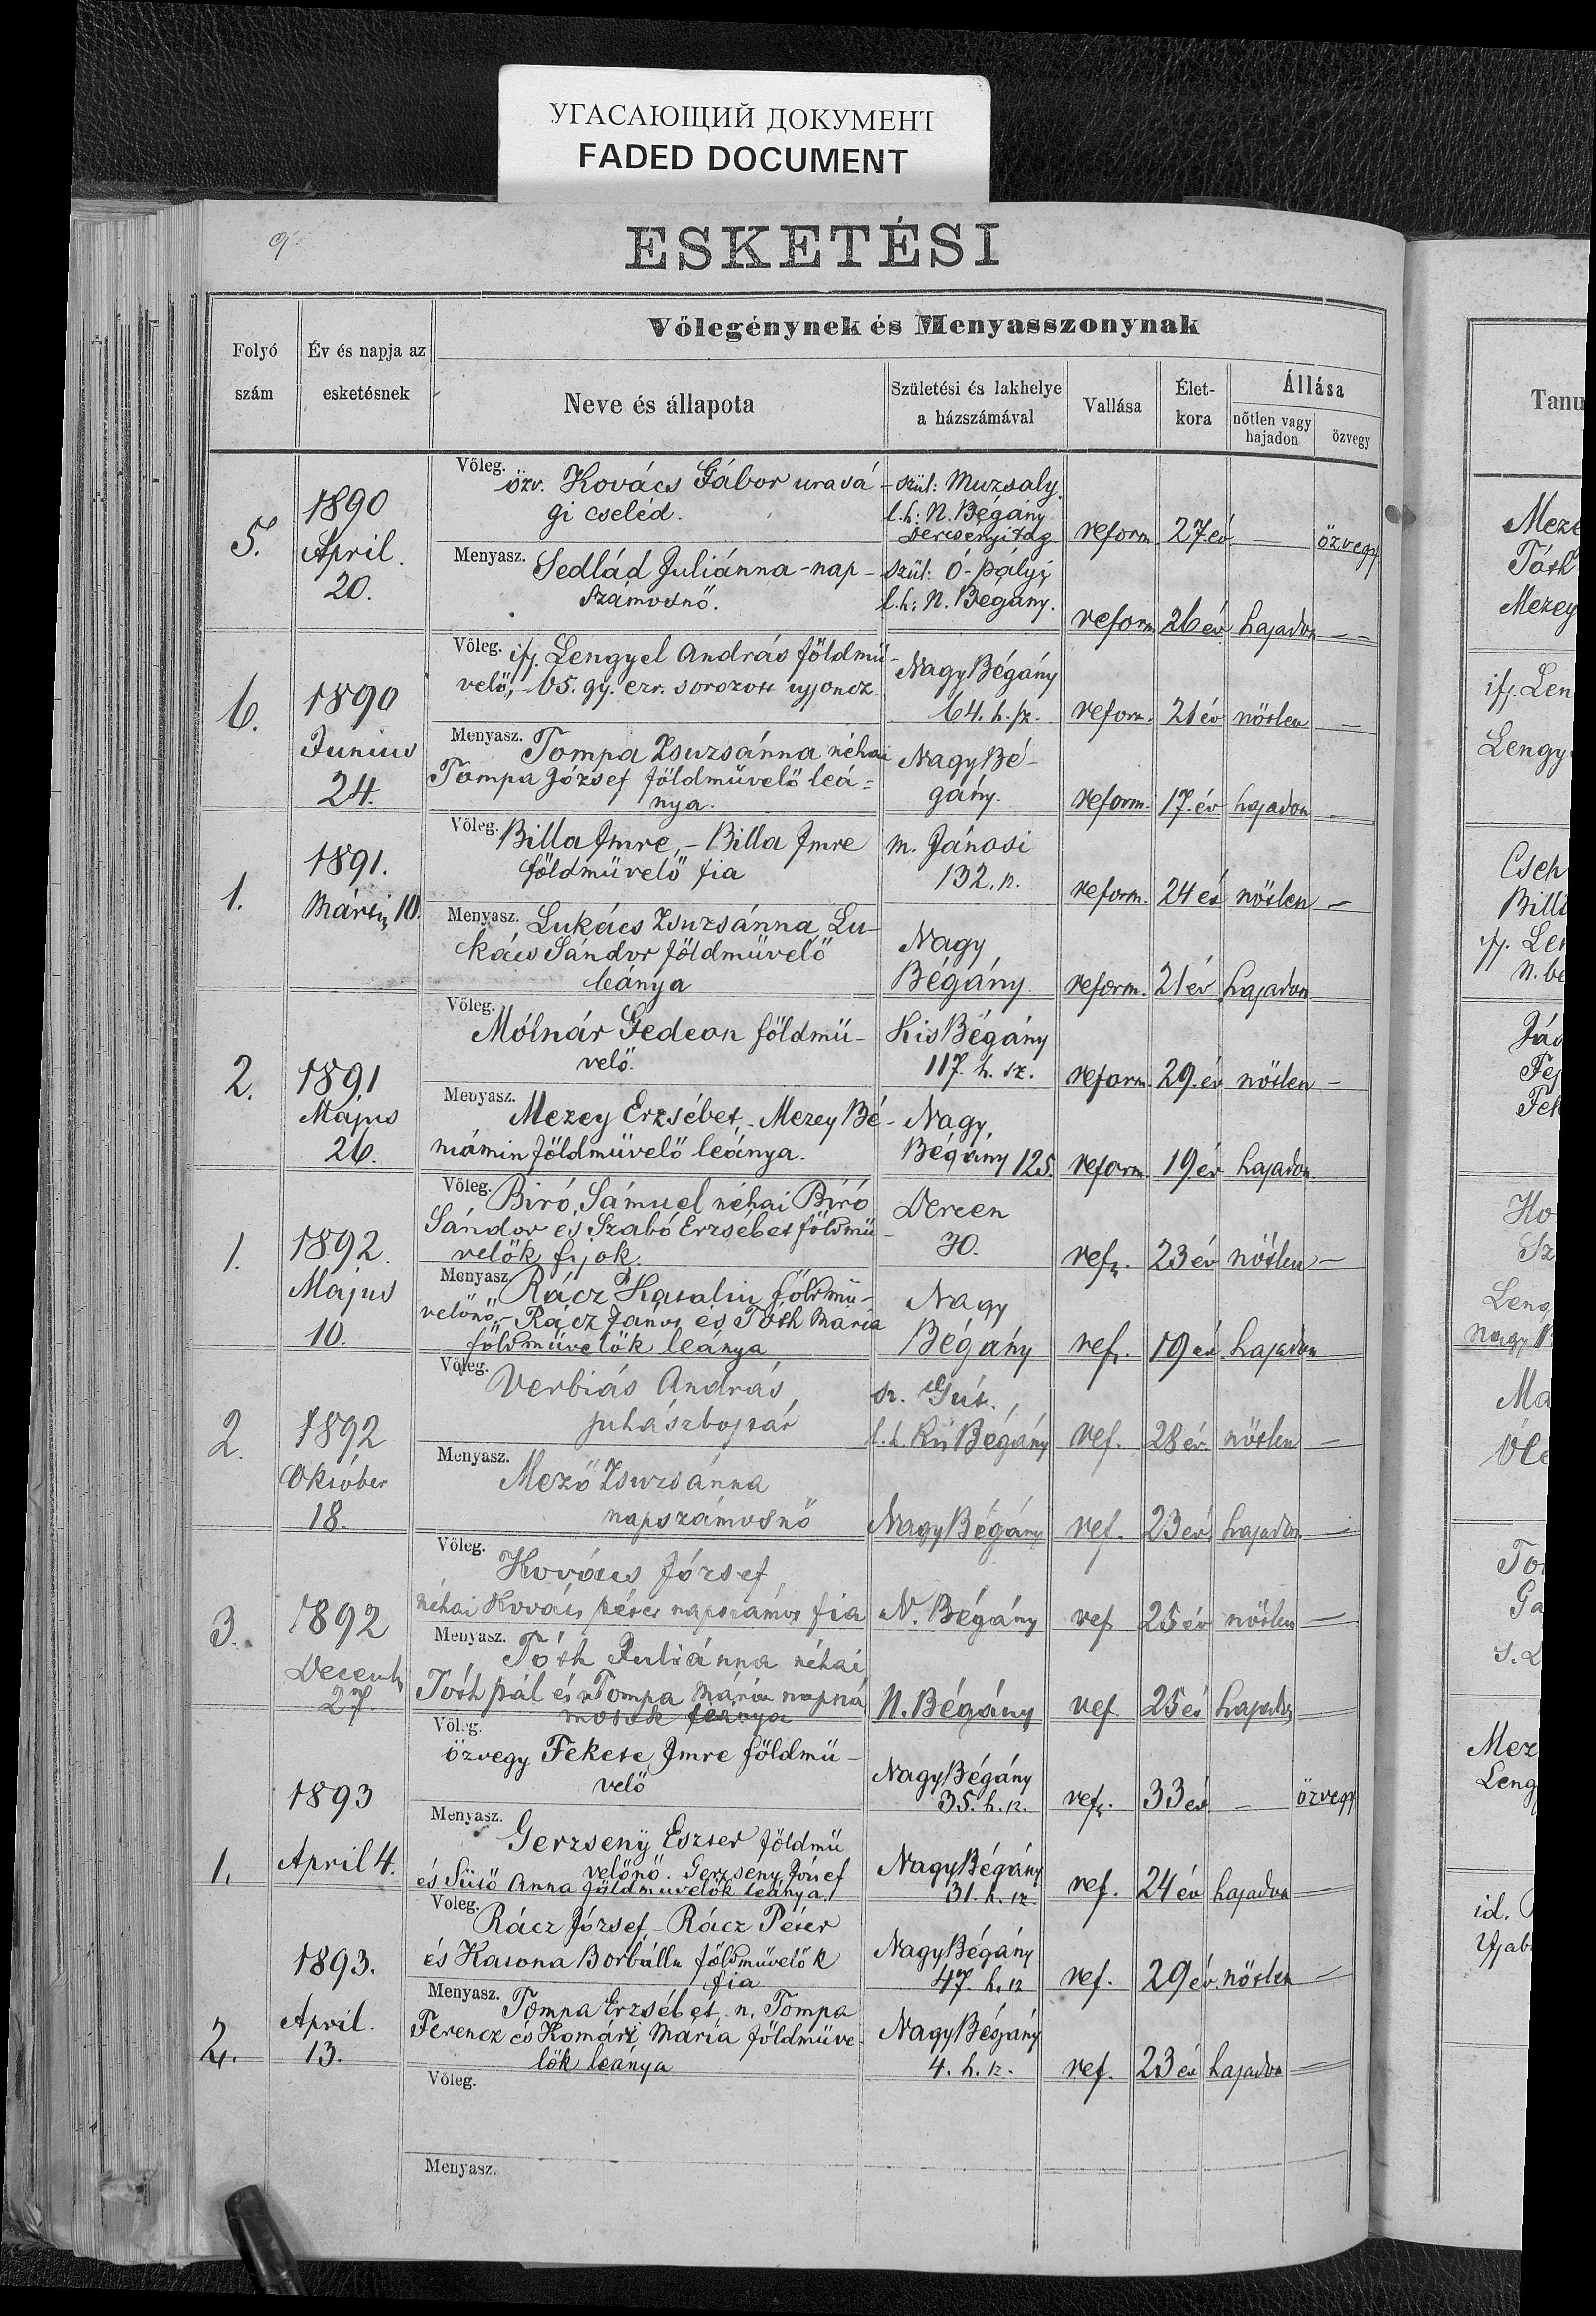 УГАСАЮЩИЙ ДОКУМЕНТ
FADED DOCUMENT
ESKETÉSI
Folyó szám
Év és napja az esketésnek
Vőlegénynek és Menyasszonynak
Neve és állapota
Születési és lakhelye a házszámával
Vallása
Élet-kora
Állása
nőtlen vagy hajadon
özvegy
Tanu
5.
1890
April.
20.
Vőleg. özv. Kovács Gábor urasá-
gi cseléd.
szül: Muzsaly.
l.h: N. Bégány
reform. 27 év — özvegy
Menyasz. Sedlád Juliánna - nap-
számosnő.
szül: Ó-pályi
l.h: N. Bégány.
reform 26 év hajadon —
6.
1890
Junius
24.
Vőleg. ifj. Lengyel András földmü-
velő, 65. gy. ezr. sorozott ujoncz.
Nagy Bégány
64. h. sz.
reform. 21 év nőtlen —
Menyasz. Tompa Zsuzsánna néhai
Tompa József földmüvelő leá-
nya.
Nagy Bé-
gány.
reform. 17. év hajadon —
1.
1891.
Márti. 10.
Vőleg. Billa Imre, - Billa Imre
földmüvelő fia
m. Jánosi
132. sz.
reform. 24 év nőtlen —
Menyasz. Lukács Zsuzsánna, Lu-
kács Sándor földmüvelő
leánya
Nagy
Bégány.
reform. 21 év hajadon
2.
1891
Május
26.
Vőleg.
Mólnár Gedeon földmü-
velő.
Kis Bégány
117. h. sz.
reform. 29. év nőtlen —
Menyasz.
Mezey Erzsébet, - Mezey Bé-
niámin földmüvelő leánya.
Nagy
Bégány 125.
reform. 19 év hajadon.
1.
1892.
Május
10.
Vőleg. Biró Sámuel néhai Biró
Sándor és Szabó Erzsébet földmü-
velők fijok.
Dercen
30.
ref. 23 év nőtlen —
Menyasz. Rácz Katalin földmü-
velőnő, - Rácz János és Tóth Mária
földmüvelők leánya
Nagy
Bégány
ref. 19 év hajadon
2.
1892
Október
18.
Vőleg. Verbiás András,
juhászbojtár
sz. Gút.,
l. h. Kis Bégány
ref. 28 év nőtlen —
Menyasz.
Mező Zsuzsánna
napszámosnő
Nagy Bégány
ref. 23 év hajadon. —
3.
1892
Decemb
27.
Vőleg.
Kovács József
néhai Kovács péter napszámos fia
N. Bégány
ref 25 év nőtlen —
Menyasz. Tóth Juliánna néhai
Tóth pál és Tompa Mária napszá
mosok leánya
N. Bégány
ref. 25 év hajadon —
1.
1893
April 4.
Vőleg.
özvegy Fekete Imre földmü-
velő
Nagy Bégány
35. h. sz.
ref. 33 év — özvegy
Menyasz.
Gerzsenyi Eszter földmü
velőnő. Gerzseny József
és Sütő Anna földmüvelők leánya.
Nagy Bégány
31. h. sz.
ref. 24 év hajadon —
2.
1893.
April.
13.
Vőleg.
Rácz József - Rácz Péter
és Katona Borbálla földmüvelők
fia
Nagy Bégány
47. h. sz
ref. 29 év nőtlen —
Menyasz. Tompa Erzsébet. n. Tompa
Ferencz és Komári Mária földmüve-
lők leánya
Nagy Bégány
4. h. sz.
ref. 23 év hajadon —
Vőleg.
Menyasz.